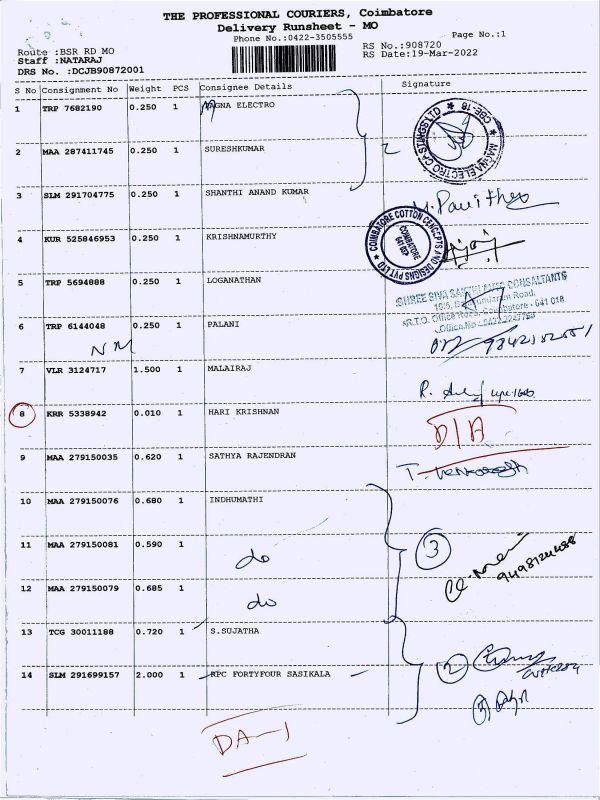 THE PROFESSIONAL COURIERS, Coimbatore
Delivery Runsheet - MO
Phone No.:0422-3505555
Page No.:1
Route :BSR RD MO
Staff :NATARAJ
DRS No. :DCJB90872001
RS No.:908720
RS Date:19-Mar-2022
S No Consignment No Weight PCS Consignee Details Signature
1 TRP 7682190 0.250 1 MAGNA ELECTRO
MAGNA ELECTRO CASTINGS LTD ★ CBE-18 ★
2 MAA 287411745 0.250 1 SURESHKUMAR
3 SLM 291704775 0.250 1 SHANTHI ANAND KUMAR
4 KUR 525846953 0.250 1 KRISHNAMURTHY
COIMBATORE COTTON CONCEPTS AND DESIGNS PVT LTD ★
COIMBATORE
641
5 TRP 5694888 0.250 1 LOGANATHAN
CONSULTANTS
R.T.O. Office Road, Coimbatore - 641 018
6 TRP 6144048 0.250 1 PALANI
NM
7 VLR 3124717 1.500 1 MALAIRAJ
8 KRR 5338942 0.010 1 HARI KRISHNAN
D/A
9 MAA 279150035 0.620 1 SATHYA RAJENDRAN
10 MAA 279150076 0.680 1 INDHUMATHI
11 MAA 279150081 0.590 1 do
3
12 MAA 279150079 0.685 1 do
13 TCG 30011188 0.720 1 S.SUJATHA
14 SLM 291699157 2.000 1 RPC FORTYFOUR SASIKALA
2
DA-1